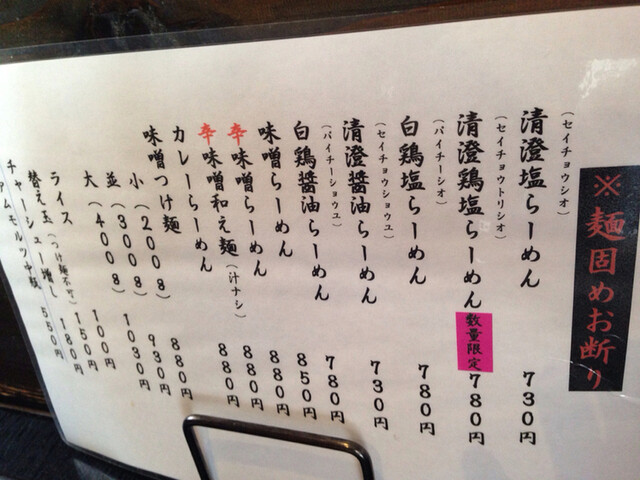 ※麺固めお断り
（セイチョウシオ）
清澄塩らーめん 730円
（セイチョウトリシオ）
清澄鶏塩らーめん 数量限定 780円
（パイチーシオ）
白鶏塩らーめん 780円
（セイチョウショウユ）
清澄醤油らーめん 730円
（パイチーショウユ）
白鶏醤油らーめん 780円
味噌らーめん 850円
辛味噌らーめん 880円
辛味噌和え麺（汁ナシ） 880円
カレーらーめん 880円
味噌つけ麺
小（200g） 880円
並（300g） 930円
大（400g） 1030円
ライス 100円
替え玉（つけ麺不可） 150円
チャーシュー増し 180円
アムモルツ中瓶 550円